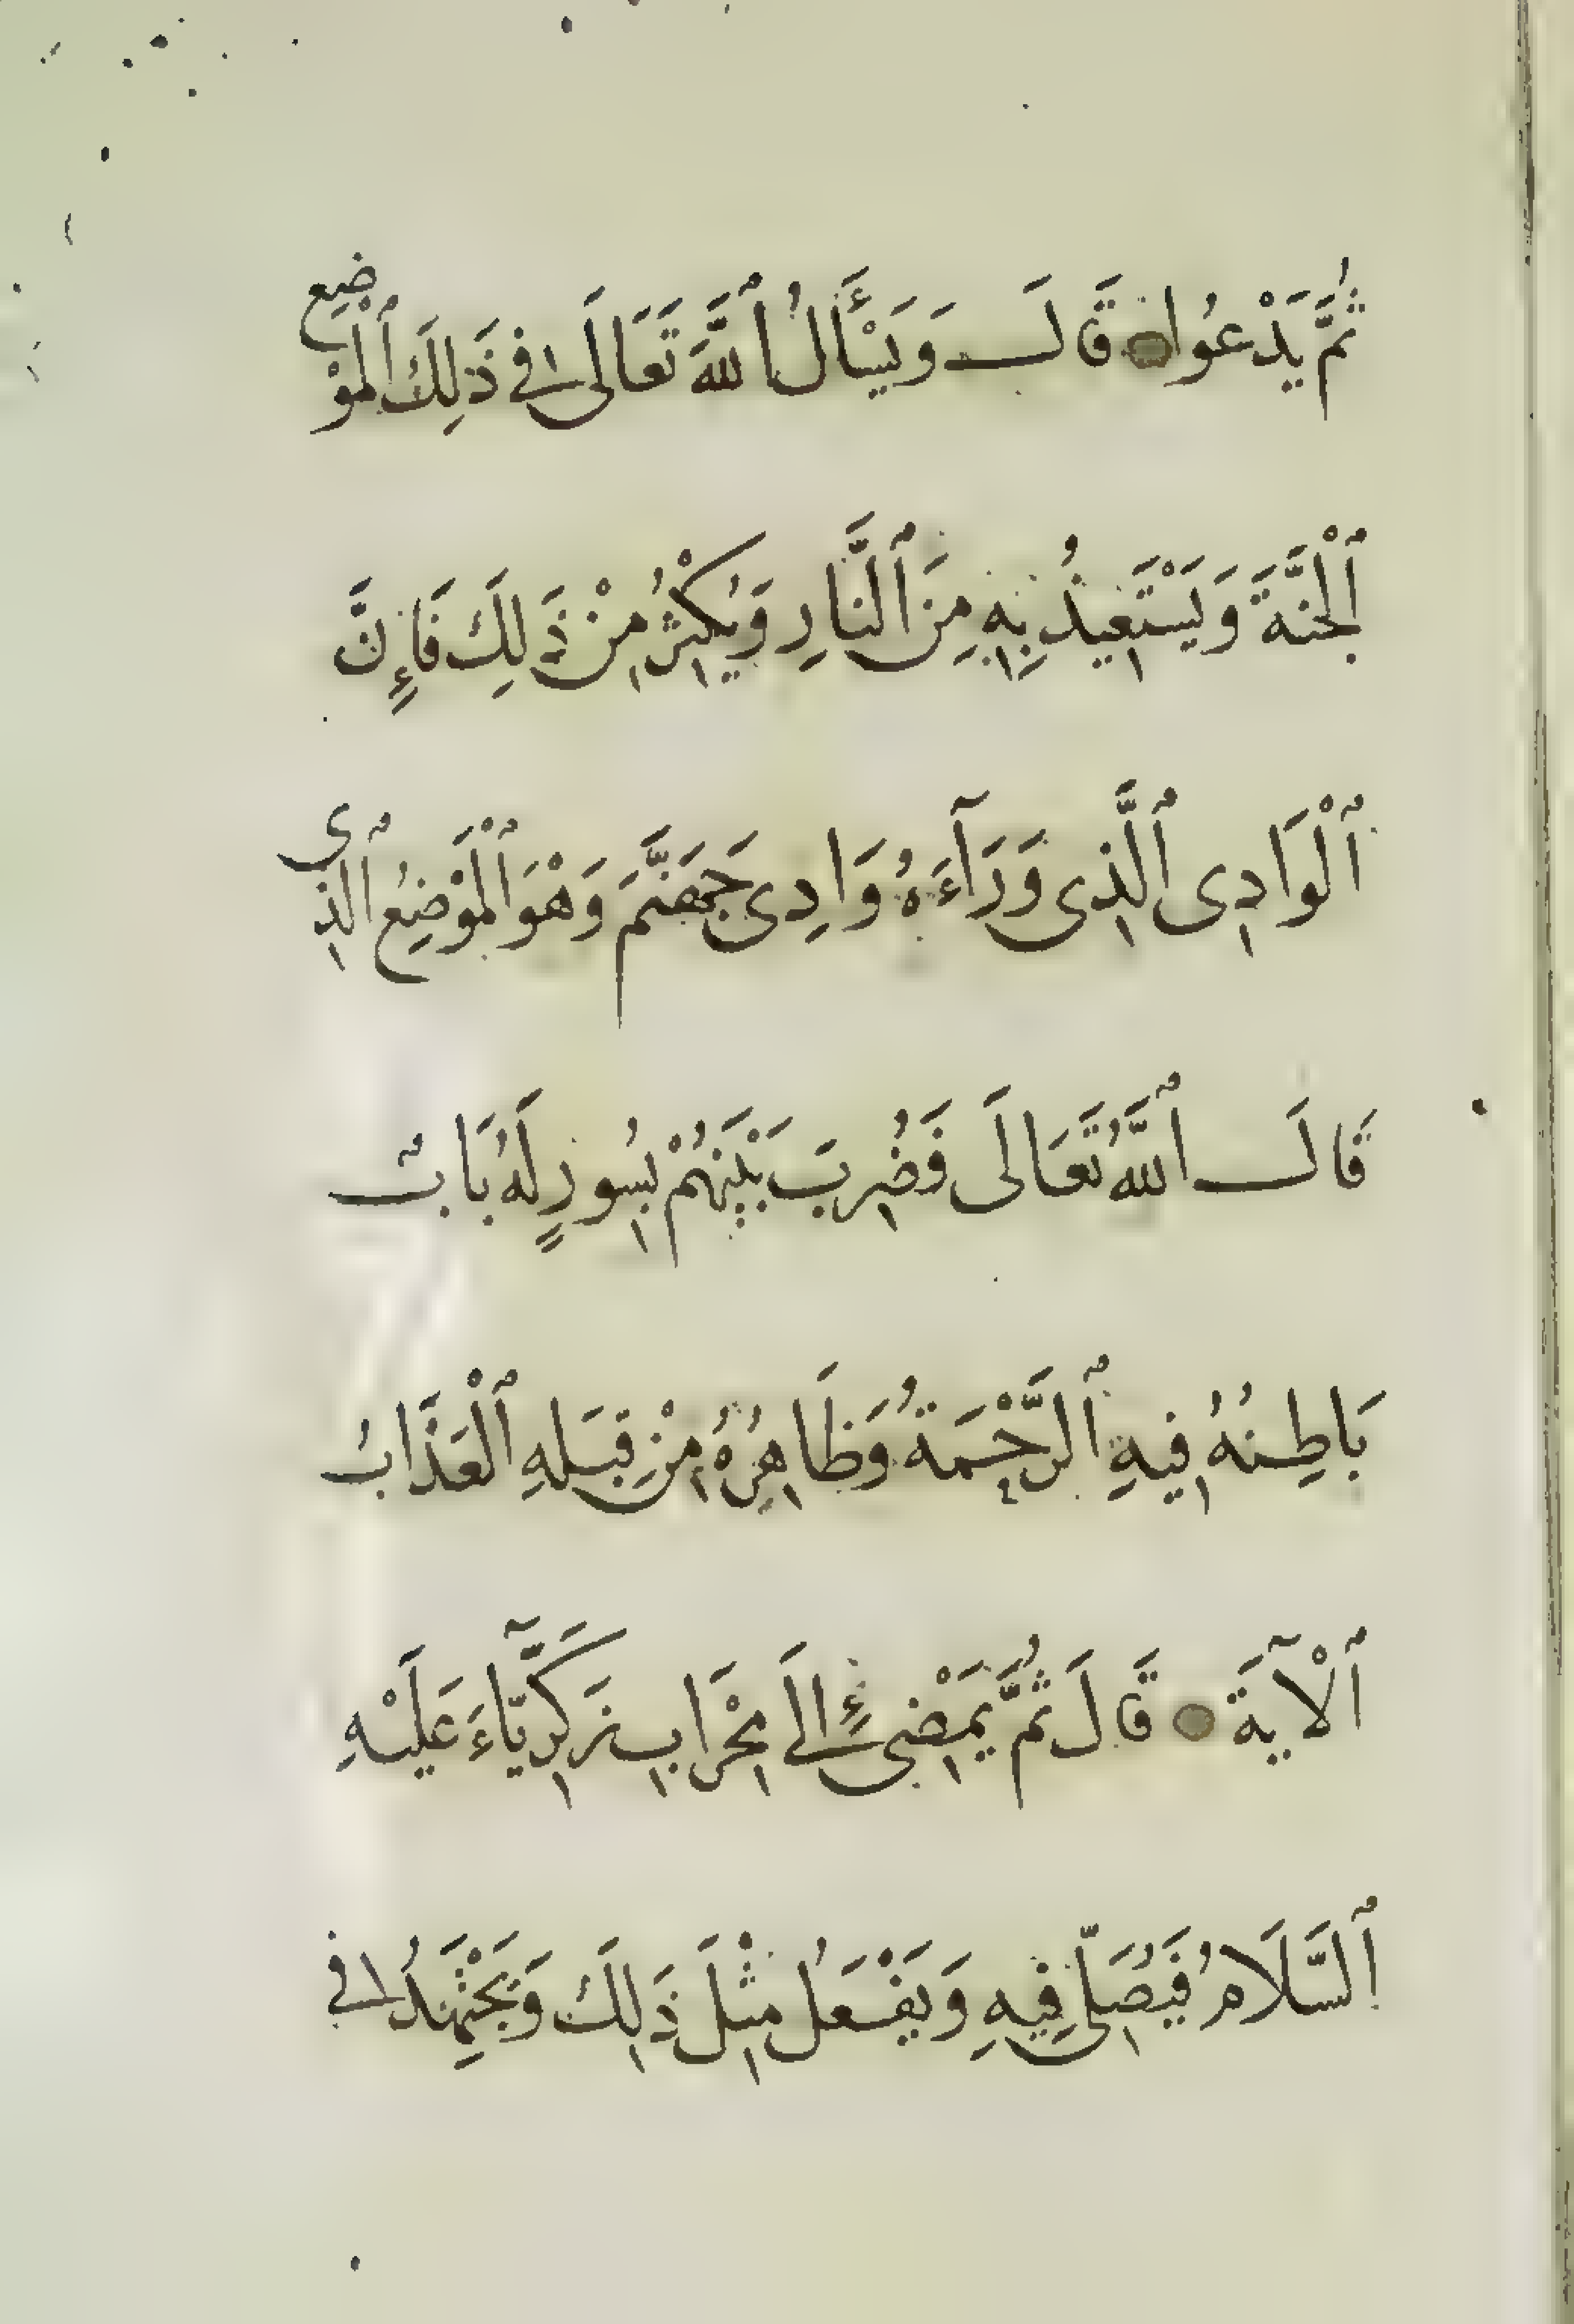 ثُمَّ يَدْعُوا قَالَ وَيَسْأَلُ ٱللَّهَ تَعَالَى فِي ذَلِكَ ٱلْمَوْضِعِ
ٱلْجَنَّةَ وَيَسْتَعِيذُ بِهِ مِنَ ٱلنَّارِ وَيُكْثِرُ مِنْ ذَلِكَ فَإِنَّ
ٱلْوَادِى ٱلَّذِى وَرَآءَهُ وَادِى جَهَنَّمَ وَهْوَ ٱلْمَوْضِعُ ٱلَّذِى
قَالَ ٱللَّهُ تَعَالَى فَضُرِبَ بَيْنَهُمْ بِسُورٍ لَهُ بَابٌ
بَاطِنُهُ فِيهِ ٱلرَّحْمَةُ وَظَاهِرُهُ مِنْ قِبَلِهِ ٱلْعَذَابُ
ٱلْآيَةَ قَالَ ثُمَّ يَمْضِى إِلَى مِحْرَابِ زَكَرِيَّآءَ عَلَيْهِ
ٱلسَّلَامُ فَيُصَلِّى فِيهِ وَيَفْعَلُ مِثْلَ ذَلِكَ وَيَجْتَهِدُ فِي